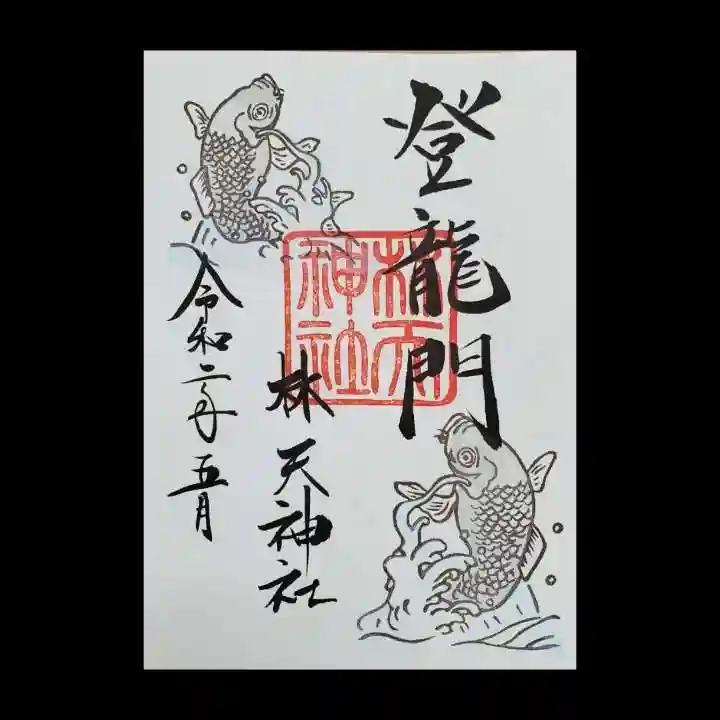 登龍門
林天神社
令和二年五月
林天
神社